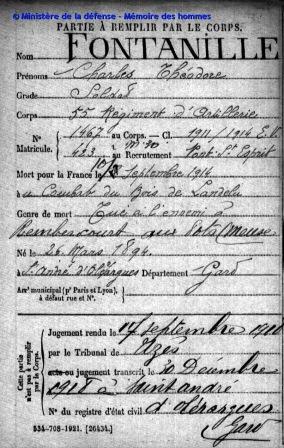 © Ministère de la défense - Mémoire des hommes
PARTIE À REMPLIR PAR LE CORPS.
Nom FONTANILLE
Prénoms Charles Théodore
Grade Soldat
Corps 55 Régiment d'Artillerie
N° 1462 au Corps. — Cl. 1911/1914 E.V.
Matricule. 483 au Recrutement Pont-St Esprit
Mort pour la France le Septembre 1914
à u Combat du Bois de Landelu
Genre de mort Tué à l'ennemi à
Rembercourt aux Pots (Meuse
Né le 26 Mars 1894
à St André d'Olérargues Département Gard
Arrt municipal (pr Paris et Lyon),
à défaut rue et N°.
Cette partie
n'est pas à remplir
par le Corps.
Jugement rendu le 17 septembre 1918
par le Tribunal de Uzès
acte ou jugement transcrit le 10 Décembre
1918 à Saint André
N° du registre d'état civil d'Olérargues
Gard
534-708-1921. [26434.]